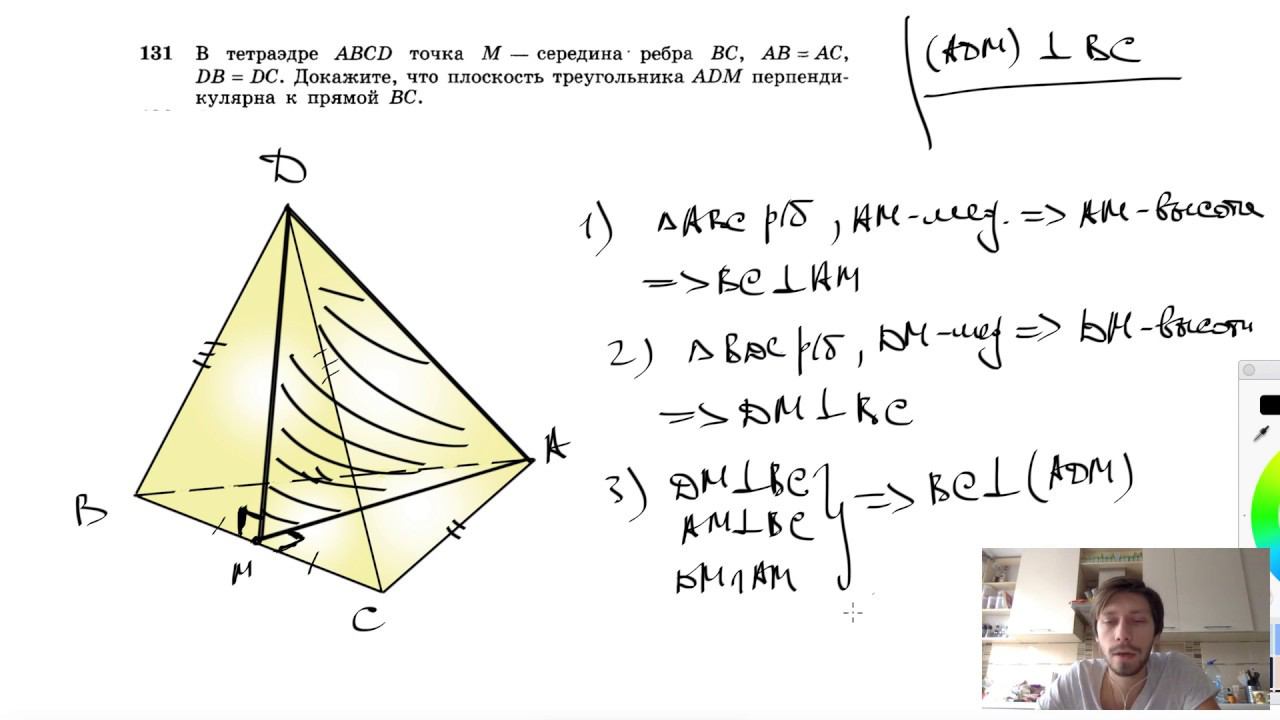 131 В тетраэдре ABCD точка M — середина ребра BC, AB = AC,
DB = DC. Докажите, что плоскость треугольника ADM перпенди-
кулярна к прямой BC.
(ADM) ⊥ BC
D
A
B
M
C
1) △ABC р/б, AM-мед. => AM-высота
=> BC ⊥ AM
2) △BDC р/б, DM-мед => DM-высота
=> DM ⊥ BC
3) DM ⊥ BC } => BC ⊥ (ADM)
AM ⊥ BC
DM ∩ AM